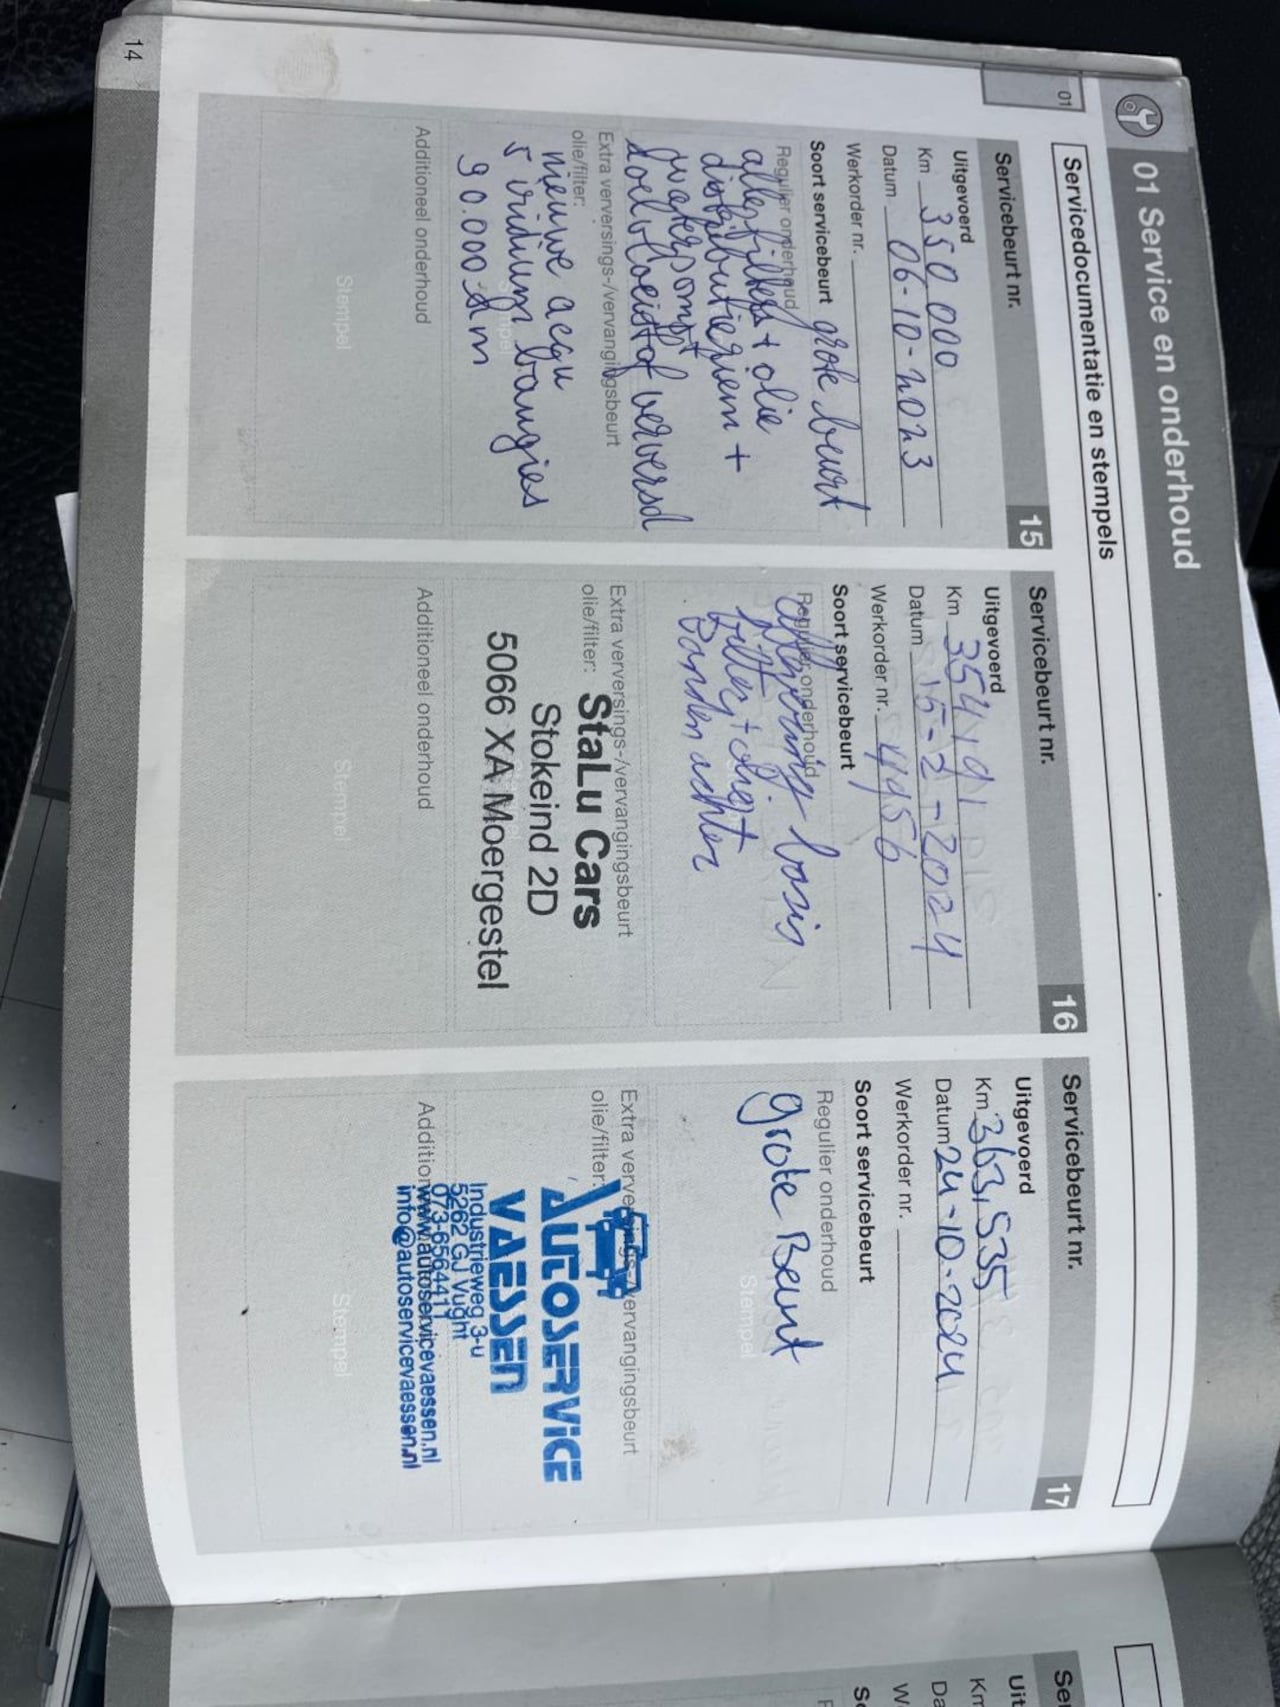 14
01 Service en onderhoud
01
Servicedocumentatie en stempels
Servicebeurt nr. 15
Uitgevoerd
Km 350 000
Datum 06-10-2023
Werkorder nr.
Soort servicebeurt grote beurt
Regulier onderhoud
alle filters + olie
distributieriem +
waterpomp +
koelvloeistof ververst
Extra verversings-/vervangingsbeurt
olie/filter:
nieuwe accu
5 iridium bougies
90.000 km
Additioneel onderhoud
Stempel
Servicebeurt nr. 16
Uitgevoerd
Km 354191
Datum 15-2-2024
Werkorder nr. 4456
Soort servicebeurt
Regulier onderhoud
basis
filter + olie +
Banden achter
Extra verversings-/vervangingsbeurt
olie/filter:
StaLu Cars
Stokeind 2D
5066 XA Moergestel
Additioneel onderhoud
Stempel
Servicebeurt nr. 17
Uitgevoerd
Km 363,535
Datum 24-10-2024
Werkorder nr.
Soort servicebeurt
Regulier onderhoud
grote Beurt
Stempel
Extra vervangingsbeurt
olie/filter:
AUTOSERVICE
VAESSEN
Industrieweg 3-u
5262 GJ Vught
073-6564411
www.autoservicevaessen.nl
info@autoservicevaessen.nl
Stempel